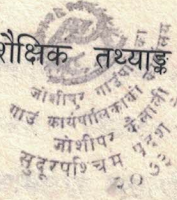 शैक्षिक तथ्याङ्क
जोशीपुर गाउँपालिका
गाउँ कार्यपालिकाको कार्यालय
जोशीपुर कैलाली
सुदूरपश्चिम प्रदेश
२०७३